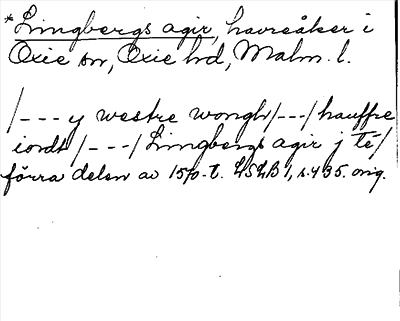 *Lingbergs agir, havreåker i
Oxie sn, Oxie hd, Malm. l.
/--- y westre wongh/---/hauffre
iordh/---/Lingbergs agir j te/
förra delen av 1500-t. LSLB 1, s. 435. orig.